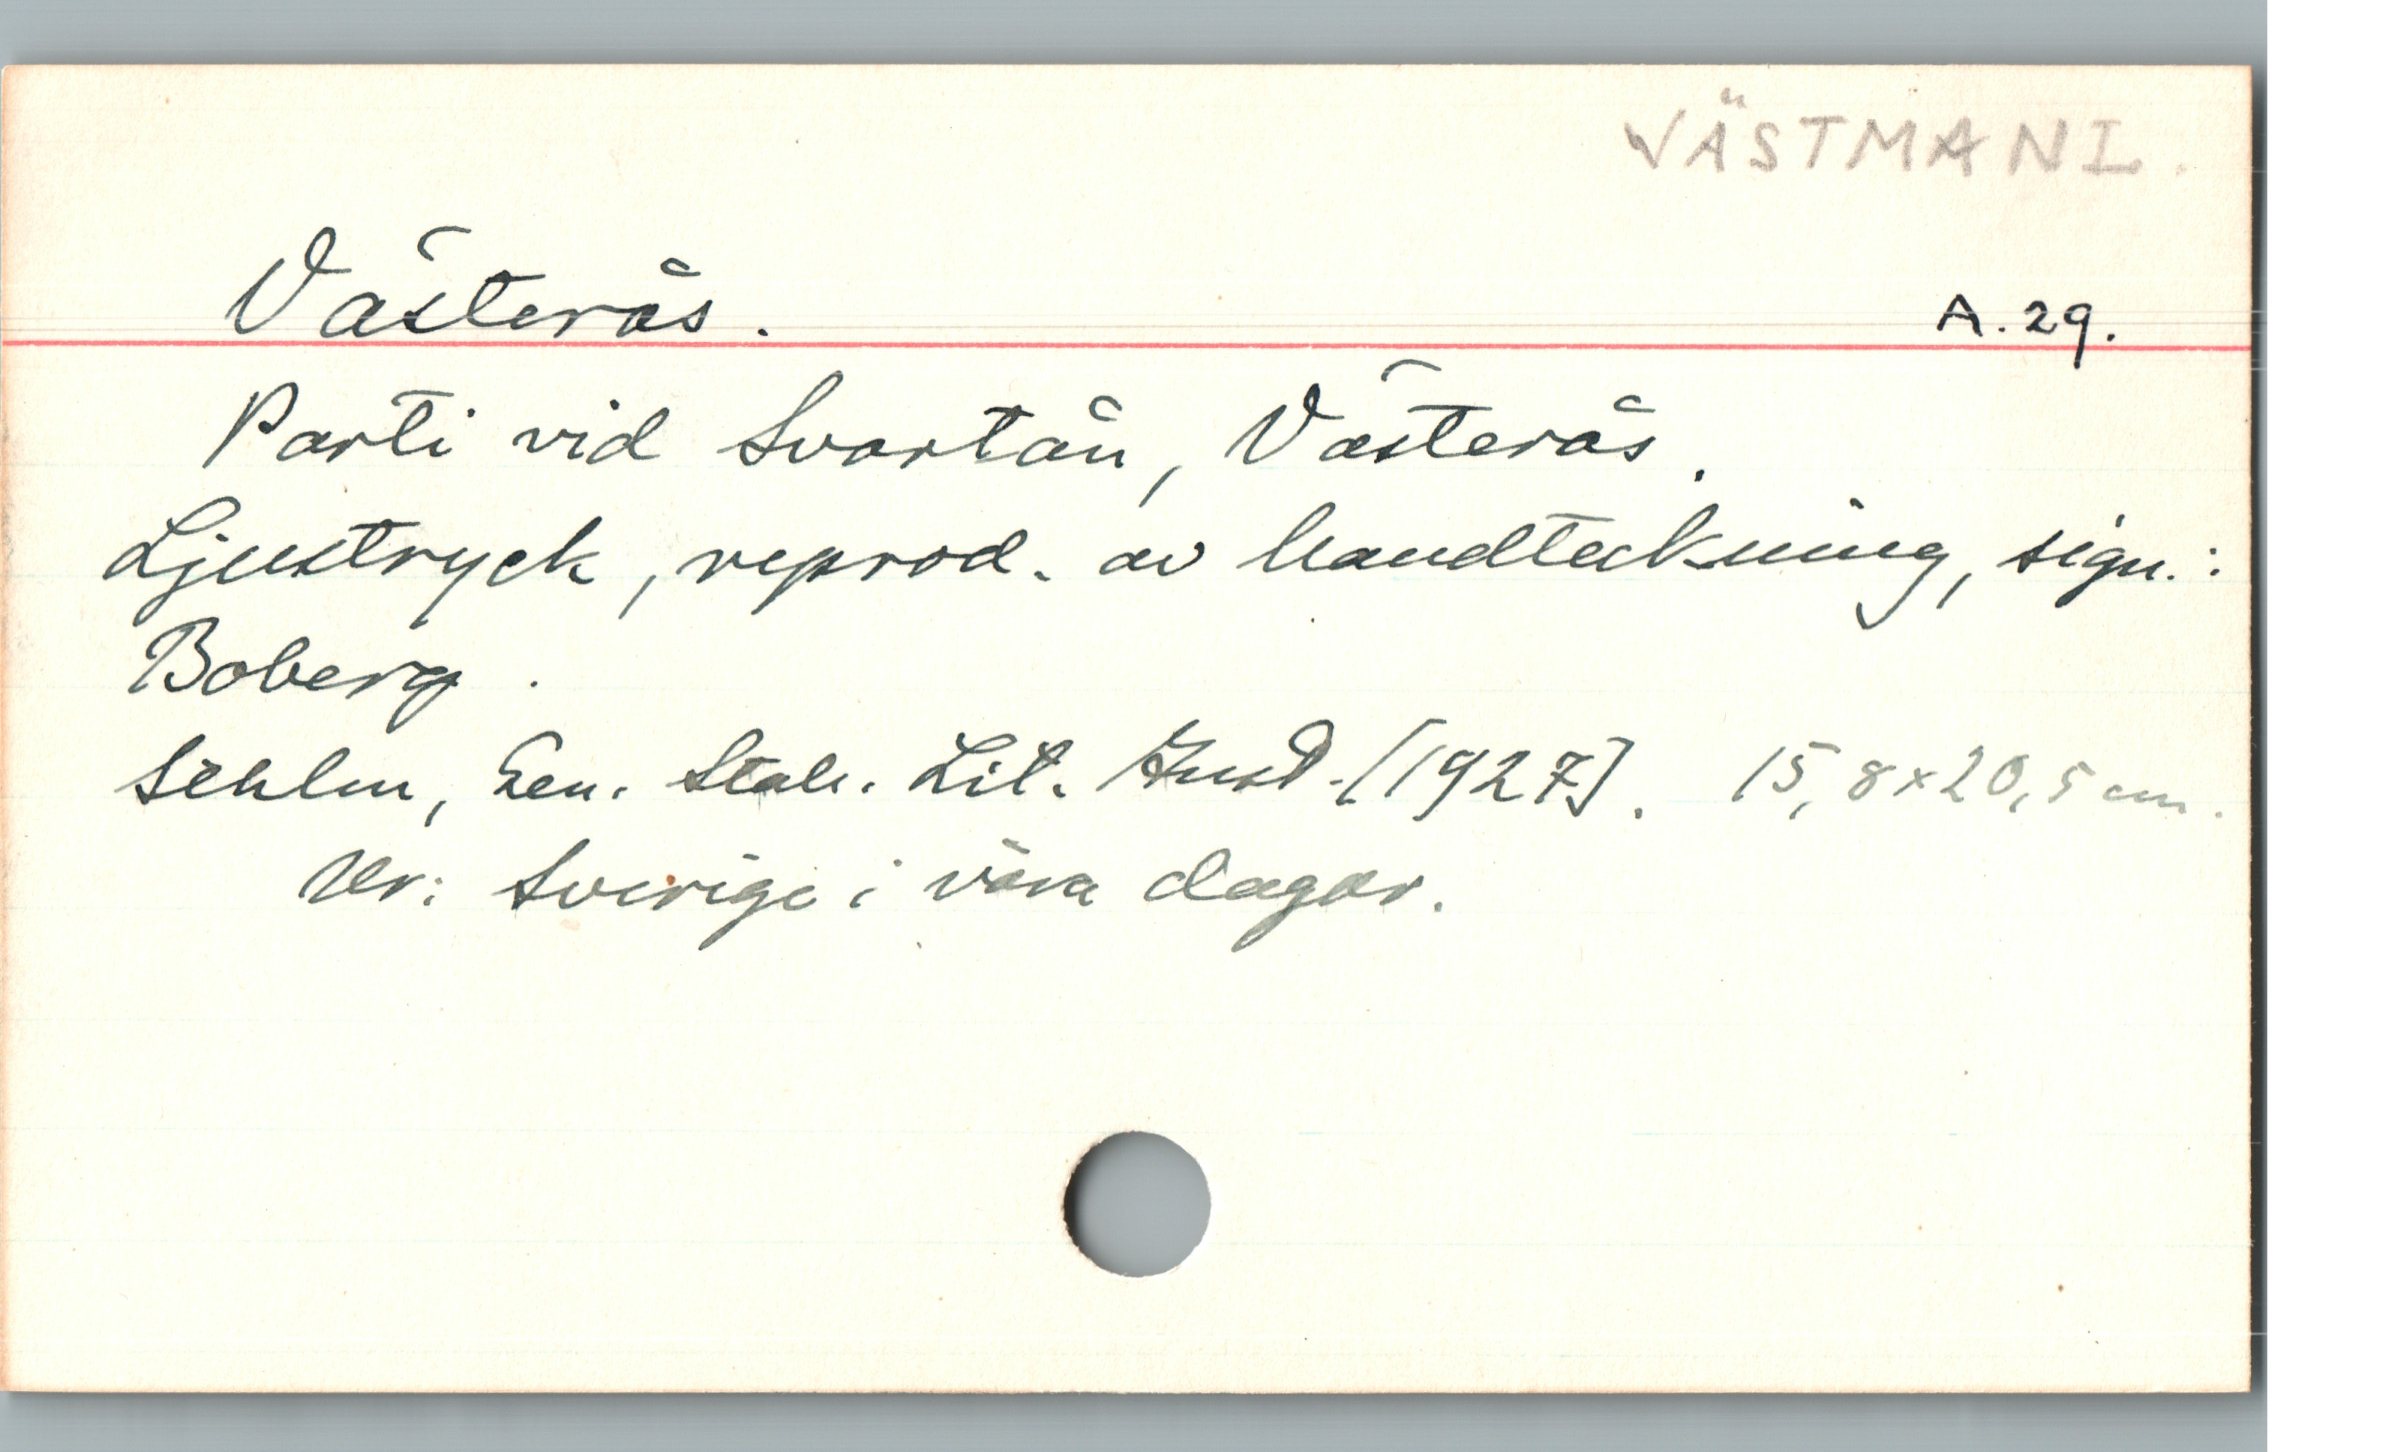 VÄSTMANL.
Västerås.
A. 29.
Parti vid Svartån, Västerås.
Ljustryck, reprod. av handteckning, sign.:
Boberg.
Sthlm, Gen. Stab. Lit. Anst. [1927]. 15,8 x 20,5 cm.
Ur: Sverige i våra dagar.